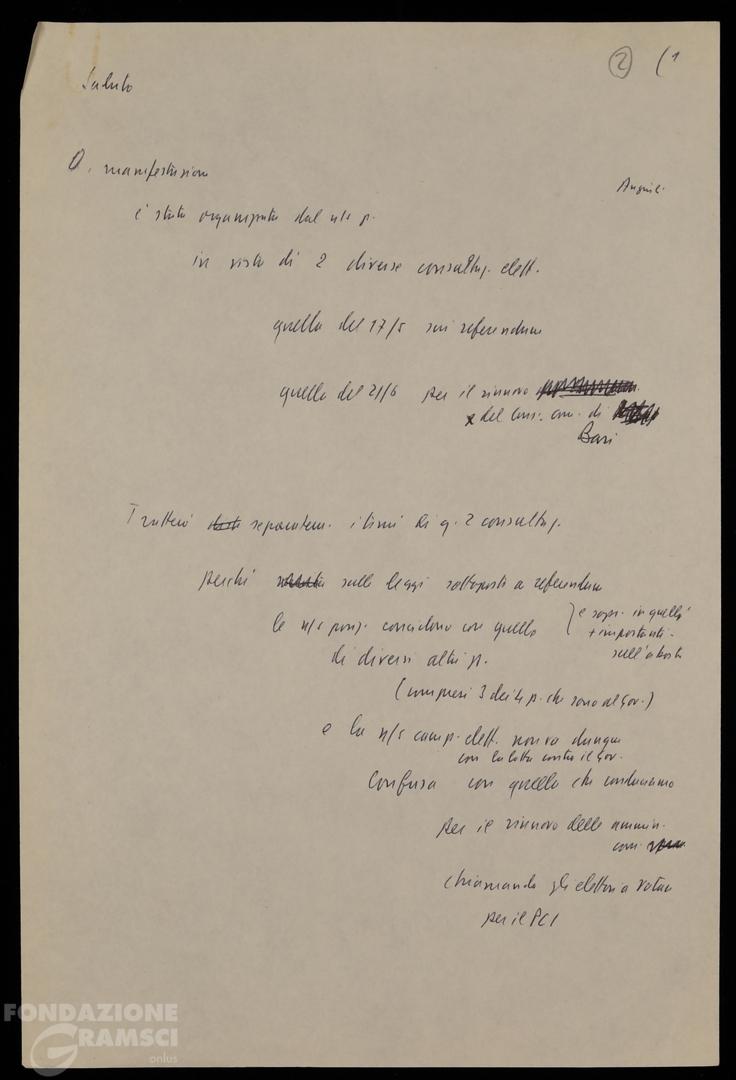 2 (1
Saluto
Q. manifestazione
Auguri.
è stata organizzata dal ns p.
in vista di 2 diverse consultaz. elett.
quella del 17/5 sui referendum
quella del 21/6 per il rinnovo
x del Cons. com. di
Bari
Tratterò separatam. i temi di q. 2 consultaz.
perché sulle leggi sottoposte a referendum
le n/s posiz. coincidono con quelle
di diversi altri p.
} e sopr. in quella
+ importante -
sull'aborto
(compresi 3 dei 4 p. che sono al Gov.)
e la n/s camp. elett. non va dunque
con la lotta contro il Gov.
confusa con quella che conduciamo
per il rinnovo delle ammin.
com.
chiamando gli elettori a votare
per il PCI
FONDAZIONE
GRAMSCI
onlus